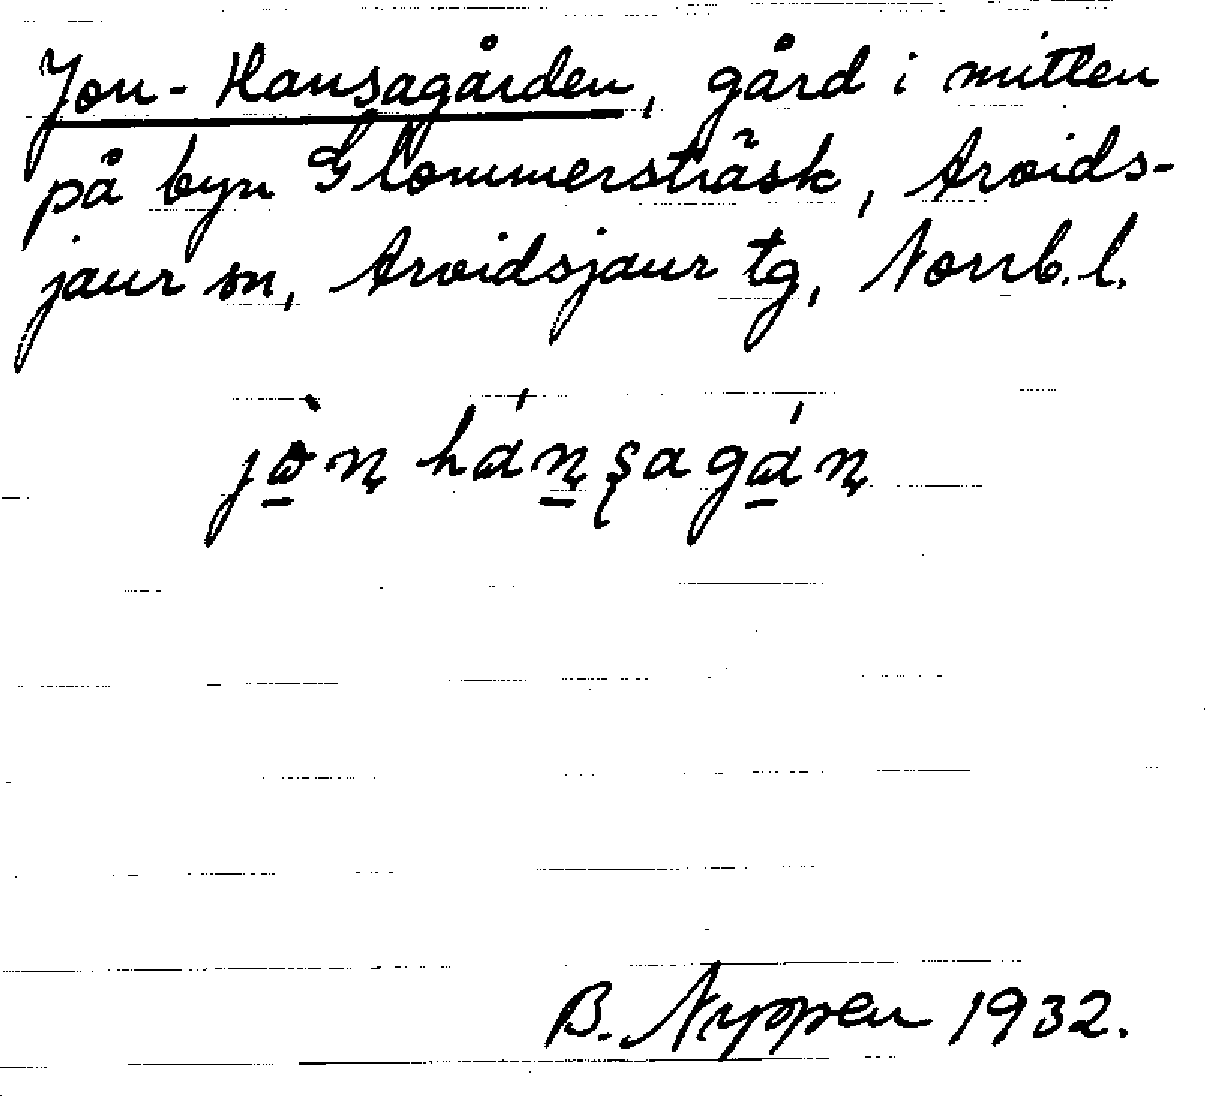 Jon-Hansagården, gård i mitten
på byn Glommersträsk, Arvids-
jaur sn, Arvidsjaur tg, Norrb. l.
B. Nyppen 1932.